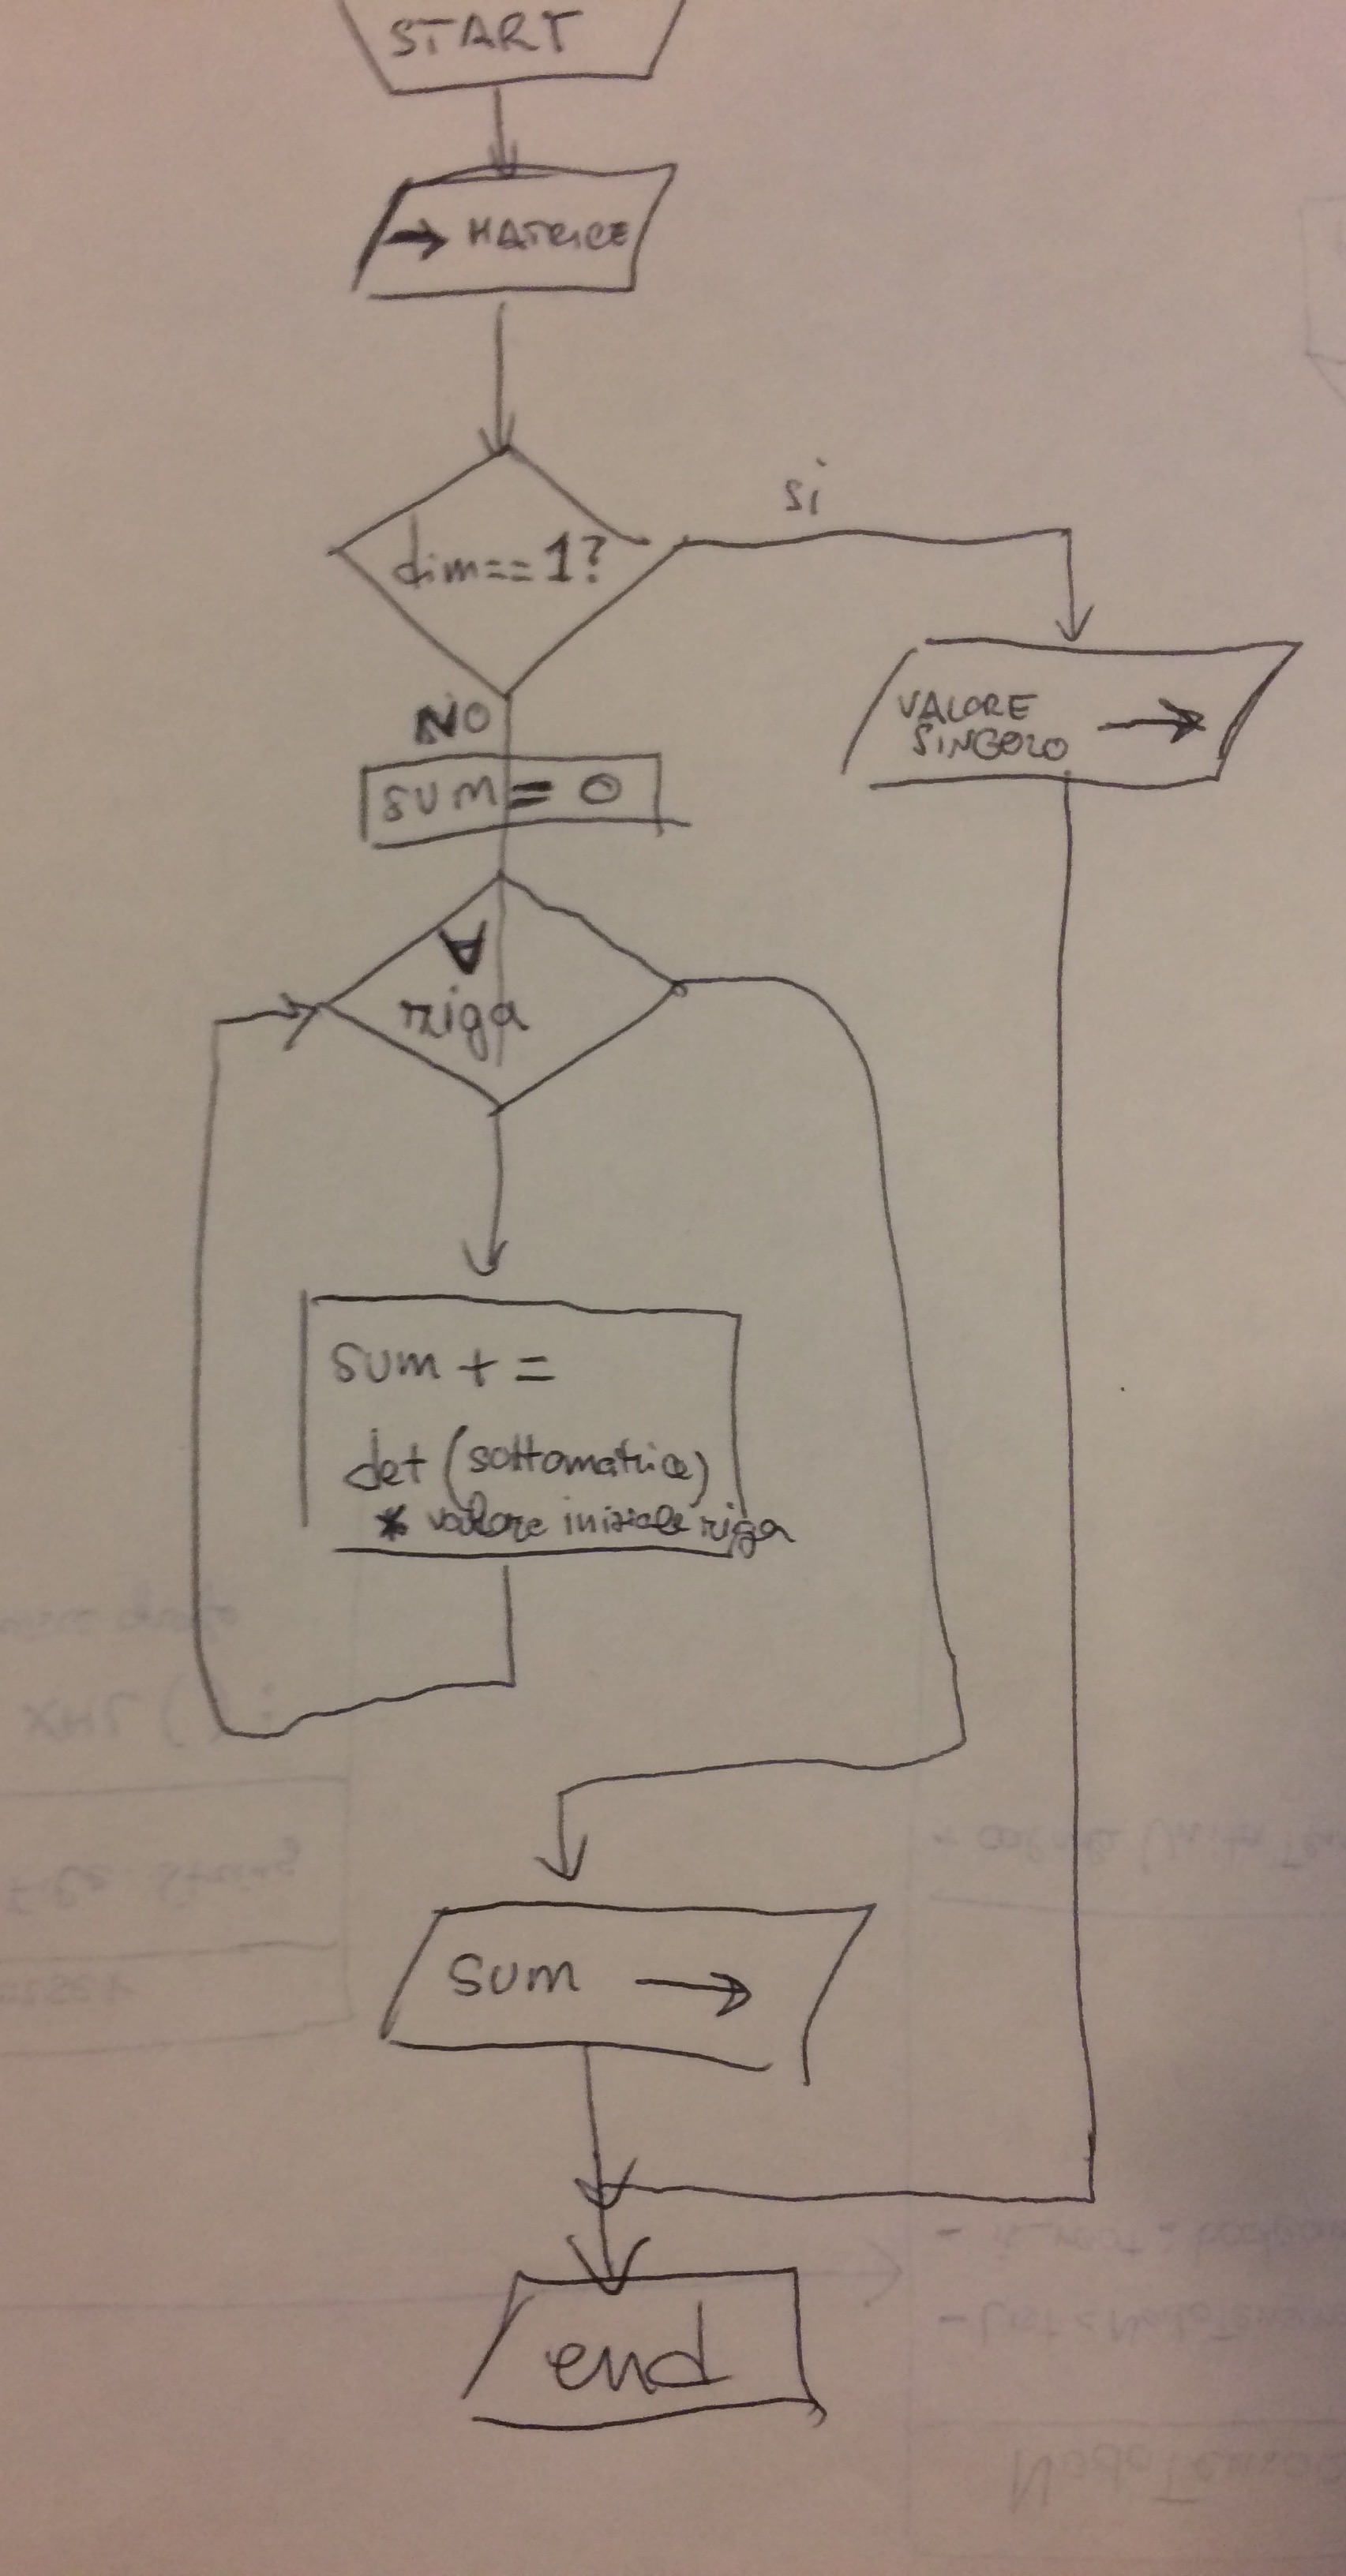 START
→ MATRICE
dim==1?
si
VALORE
SINGOLO →
NO
sum = 0
∀
riga
sum + =
det (sottomatrice)
* valore iniziale riga
sum →
end